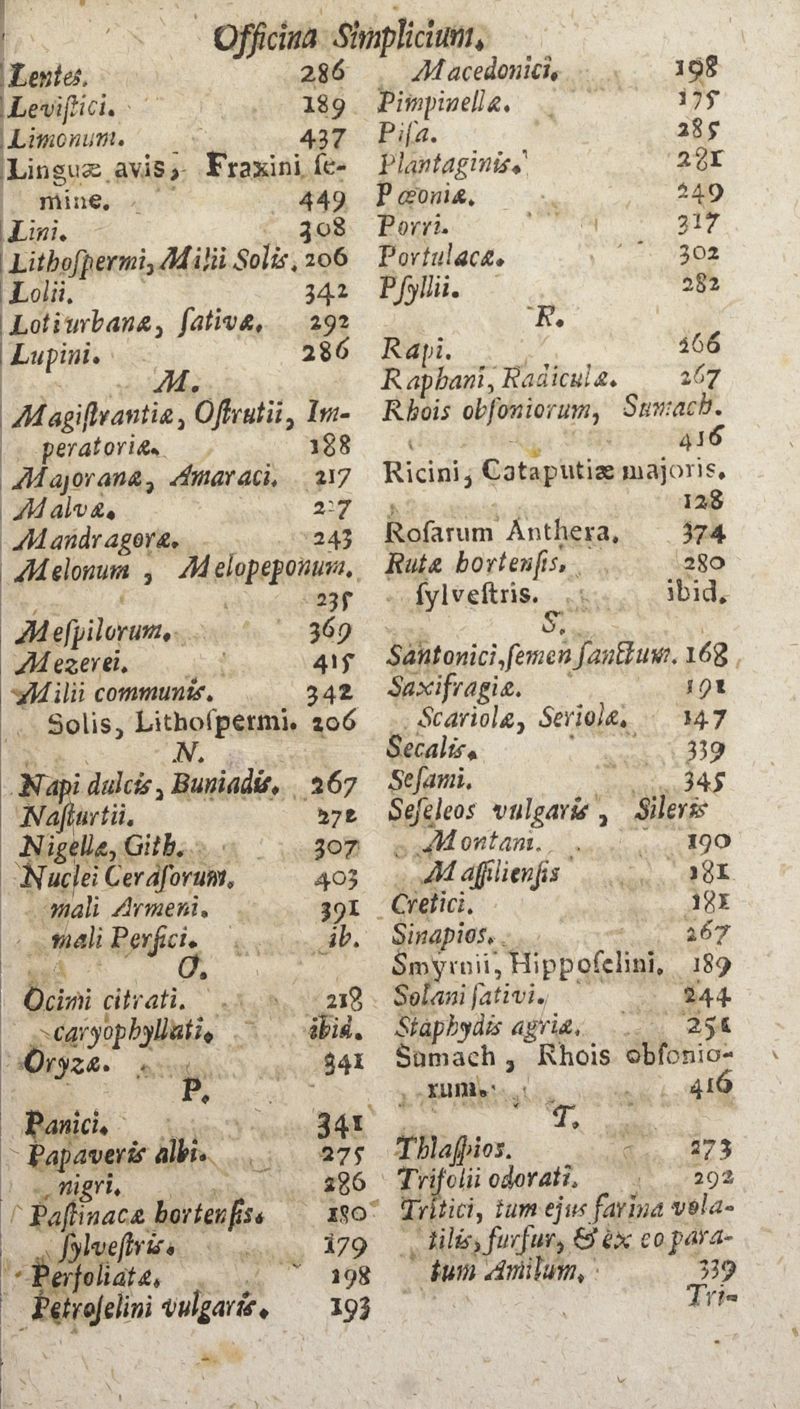 Officina Simplicium.
Lentes. 286
Leviſtici. 189
Limonum. 437
Linguæ avis, Fraxini ſe-
mine. 449
Lini. 308
Lithoſpermi, Milii Solis. 206
Lolii. 342
Loti urbanæ, ſativæ. 292
Lupini. 286
M.
Magiſtrantiæ, Oſtrutii, Im-
peratoriæ. 188
Majoranæ, Amaraci. 217
Malvæ. 227
Mandragoræ. 243
Melonum, Melopeponum.
235
Meſpilorum. 369
Mezerei. 415
Milii communis. 342
Solis, Lithoſpermi. 206
N.
Napi dulcis, Buniadis. 267
Naſturtii. 272
Nigellæ, Gith. 307
Nuclei Ceraſorum. 403
mali Armeni. 391
mali Perſici. ib.
O.
Ocimi citrati. 218
caryophyllati. ibid.
Oryzæ. 341
P.
Panici. 341
Papaveris albi. 275
nigri. 286
Paſtinacæ hortenſis. 180
ſylveſtris. 179
Perfoliatæ. 198
Petroſelini vulgaris. 193
Macedonici. 198
Pimpinellæ. 175
Piſa. 285
Plantaginis. 281
Pœoniæ. 249
Porri. 317
Portulacæ. 302
Pſyllii. 282
R.
Rapi. 266
Raphani, Radiculæ. 267
Rhois obſoniorum, Sumach.
416
Ricini, Cataputiæ majoris.
128
Roſarum Anthera. 374
Rutæ hortenſis. 280
ſylveſtris. ibid.
S.
Santonici, ſemen ſanctum. 168
Saxifragiæ. 191
Scariolæ, Seriolæ. 147
Secalis. 339
Seſami. 345
Seſeleos vulgaris, Sileris
Montani. 190
Maſſilienſis 181
Cretici. 181
Sinapios. 267
Smyrnii, Hippoſelini. 189
Solani ſativi. 244
Staphydis agriæ. 251
Sumach, Rhois obſonio-
rum. 416
T.
Thlaſpios. 273
Trifolii odorati. 292
Tritici, tum ejus farina vola-
tilis, furfur, & ex eo para-
tum Amilum. 339
Tri-